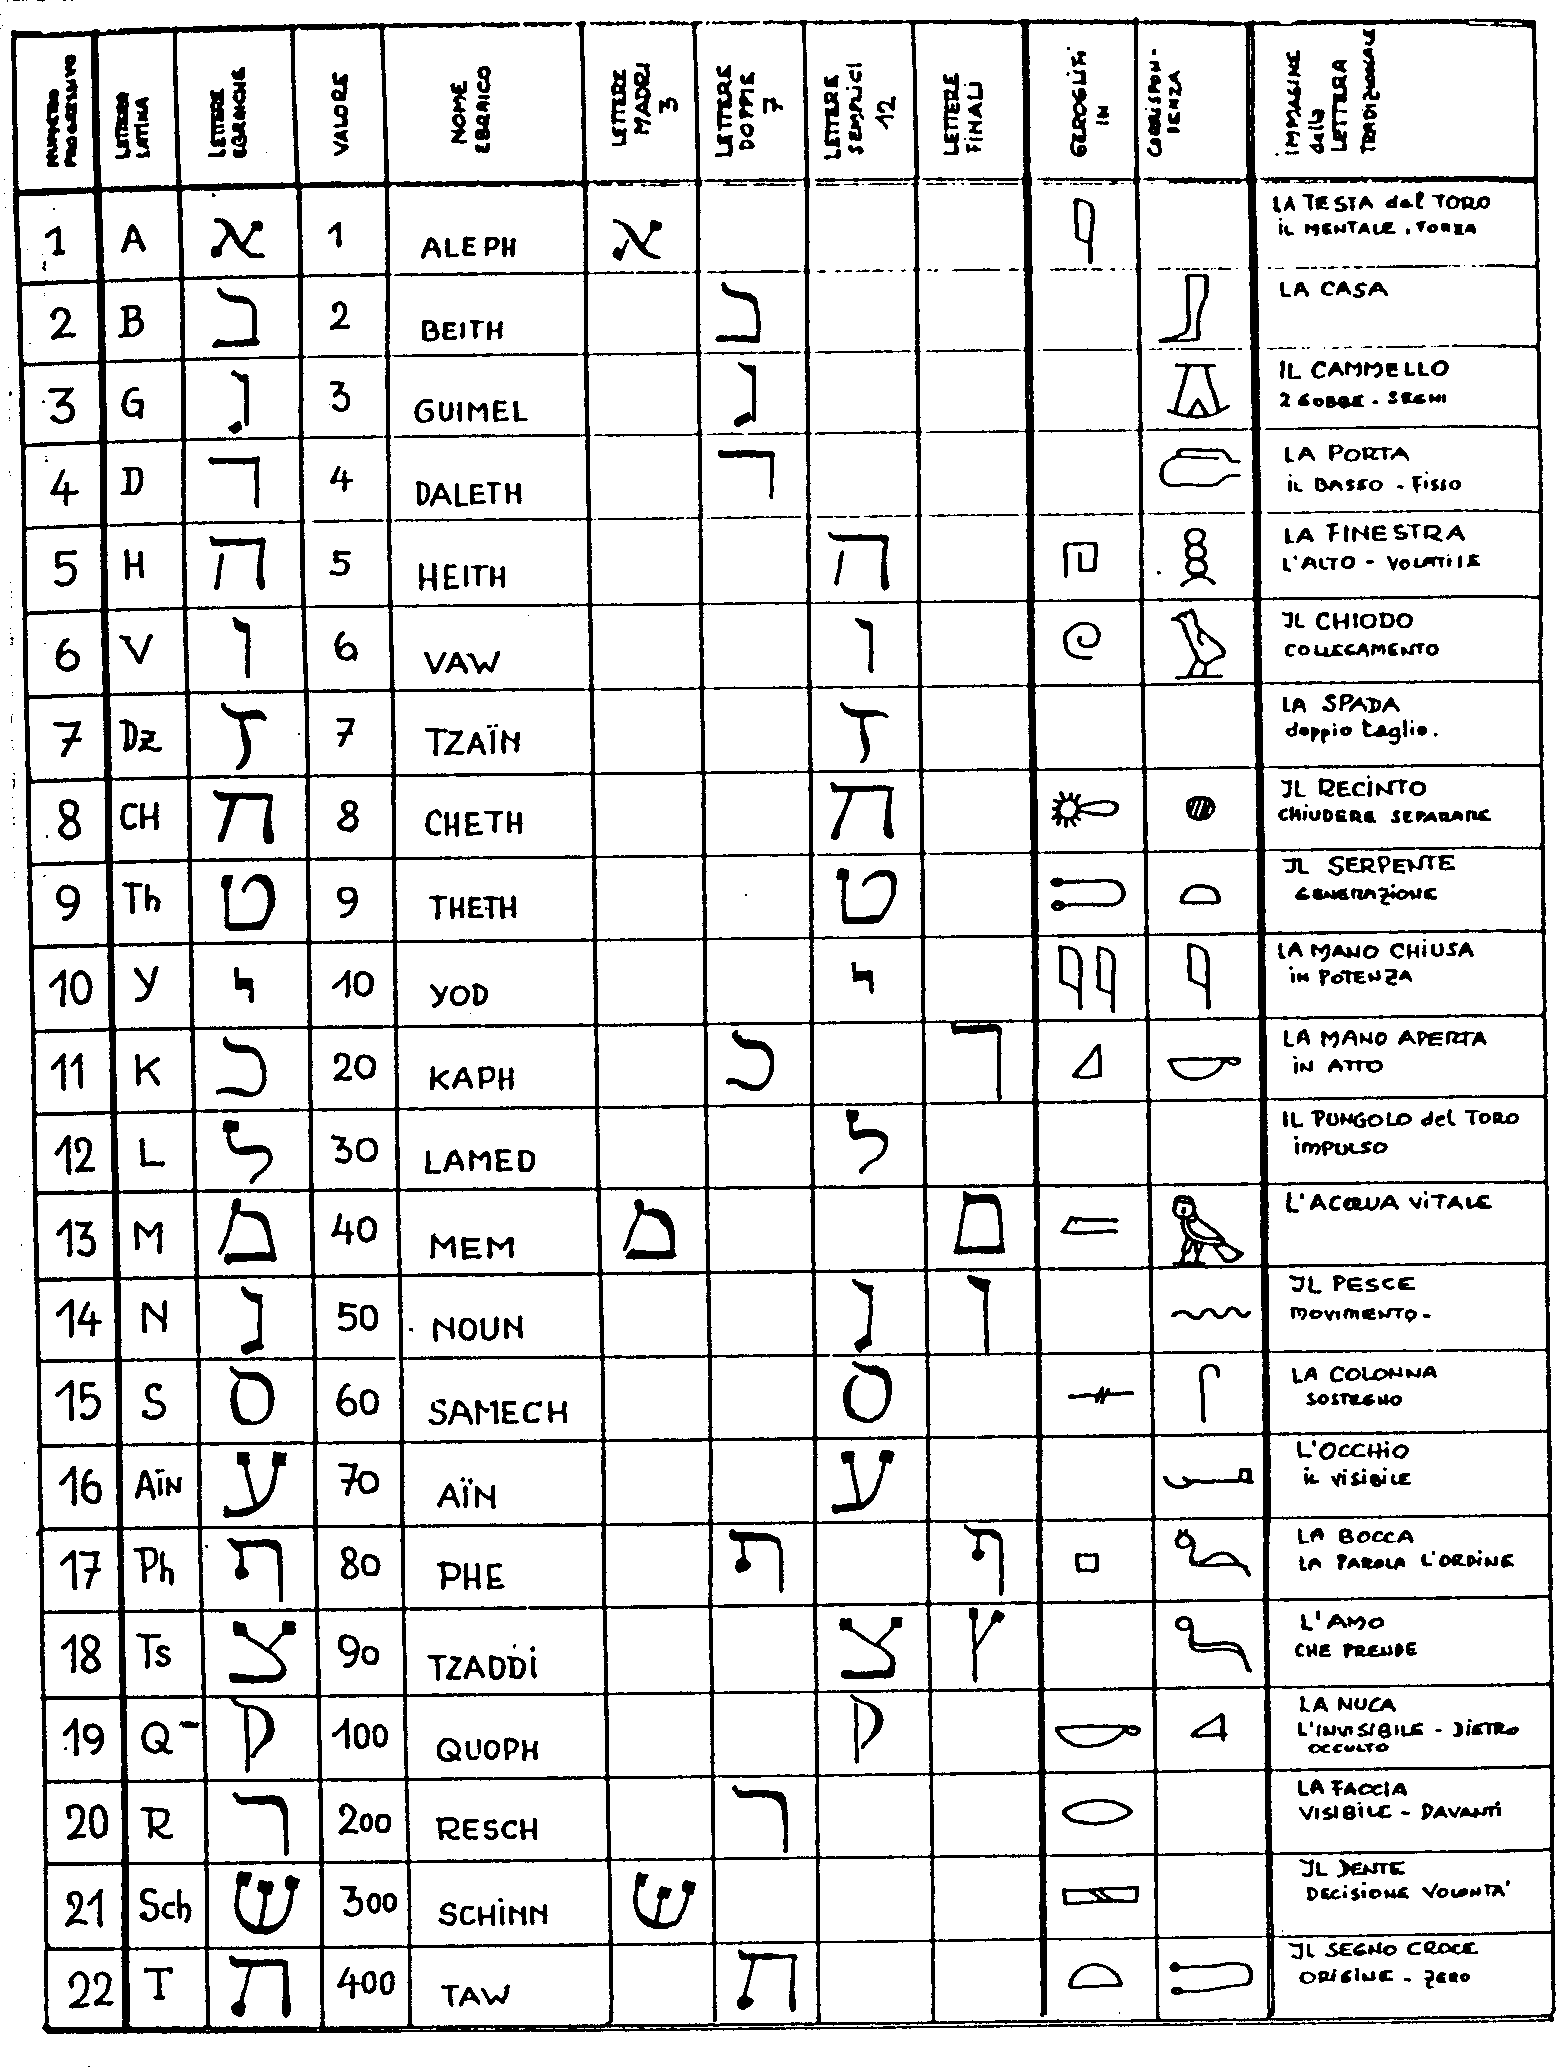 NUMERO PROGRESSIVO
LETTERA LATINA
LETTERE EBRAICHE
VALORE
NOME EBRAICO
LETTERE MADRI 3
LETTERE DOPPIE 7
LETTERE SEMPLICI 12
LETTERE FINALI
GEROGLIFI IN
CORRISPON-DENZA
IMMAGINE della LETTERA TRADIZIONALE
1 A א 1 ALEPH א LA TESTA del TORO
iL MENTALE . FORZA
2 B ב 2 BEITH ב LA CASA
3 G ג 3 GUIMEL ג IL CAMMELLO
2 GOBBE - SEGNI
4 D ד 4 DALETH ד LA PORTA
iL BASSO - Fisso
5 H ה 5 HEITH ה LA FINESTRA
L'ALTO - VOLATILE
6 V ו 6 VAW ו IL CHIODO
COLLEGAMENTO
7 Dz ז 7 TZAÏN ז LA SPADA
doppio taglio.
8 CH ח 8 CHETH ח IL RECINTO
CHIUDERE SEPARARE
9 Th ט 9 THETH ט IL SERPENTE
GENERAZIONE
10 Y י 10 YOD י LA MANO CHIUSA
in POTENZA
11 K כ 20 KAPH כ ך LA MANO APERTA
IN ATTO
12 L ל 30 LAMED ל IL PUNGOLO del TORO
IMPULSO
13 M מ 40 MEM מ ם L'ACQUA VITALE
14 N נ 50 NOUN נ ן IL PESCE
MOVIMENTO -
15 S ס 60 SAMECH ס LA COLONNA
SOSTEGNO
16 AÏN ע 70 AÏN ע L'OCCHIO
iL VISIBILE
17 Ph פ 80 PHE פ ף LA BOCCA
LA PAROLA L'ORDINE
18 Ts צ 90 TZADDI צ ץ L'AMO
CHE PRENDE
19 Q - ק 100 QUOPH ק LA NUCA
L'INVISIBILE - DIETRO
OCCULTO
20 R ר 200 RESCH ר LA FACCIA
VISIBILE - DAVANTI
21 Sch ש 300 SCHINN ש IL DENTE
DECISIONE VOLONTA'
22 T ת 400 TAW ת IL SEGNO CROCE
ORIGINE - ZERO